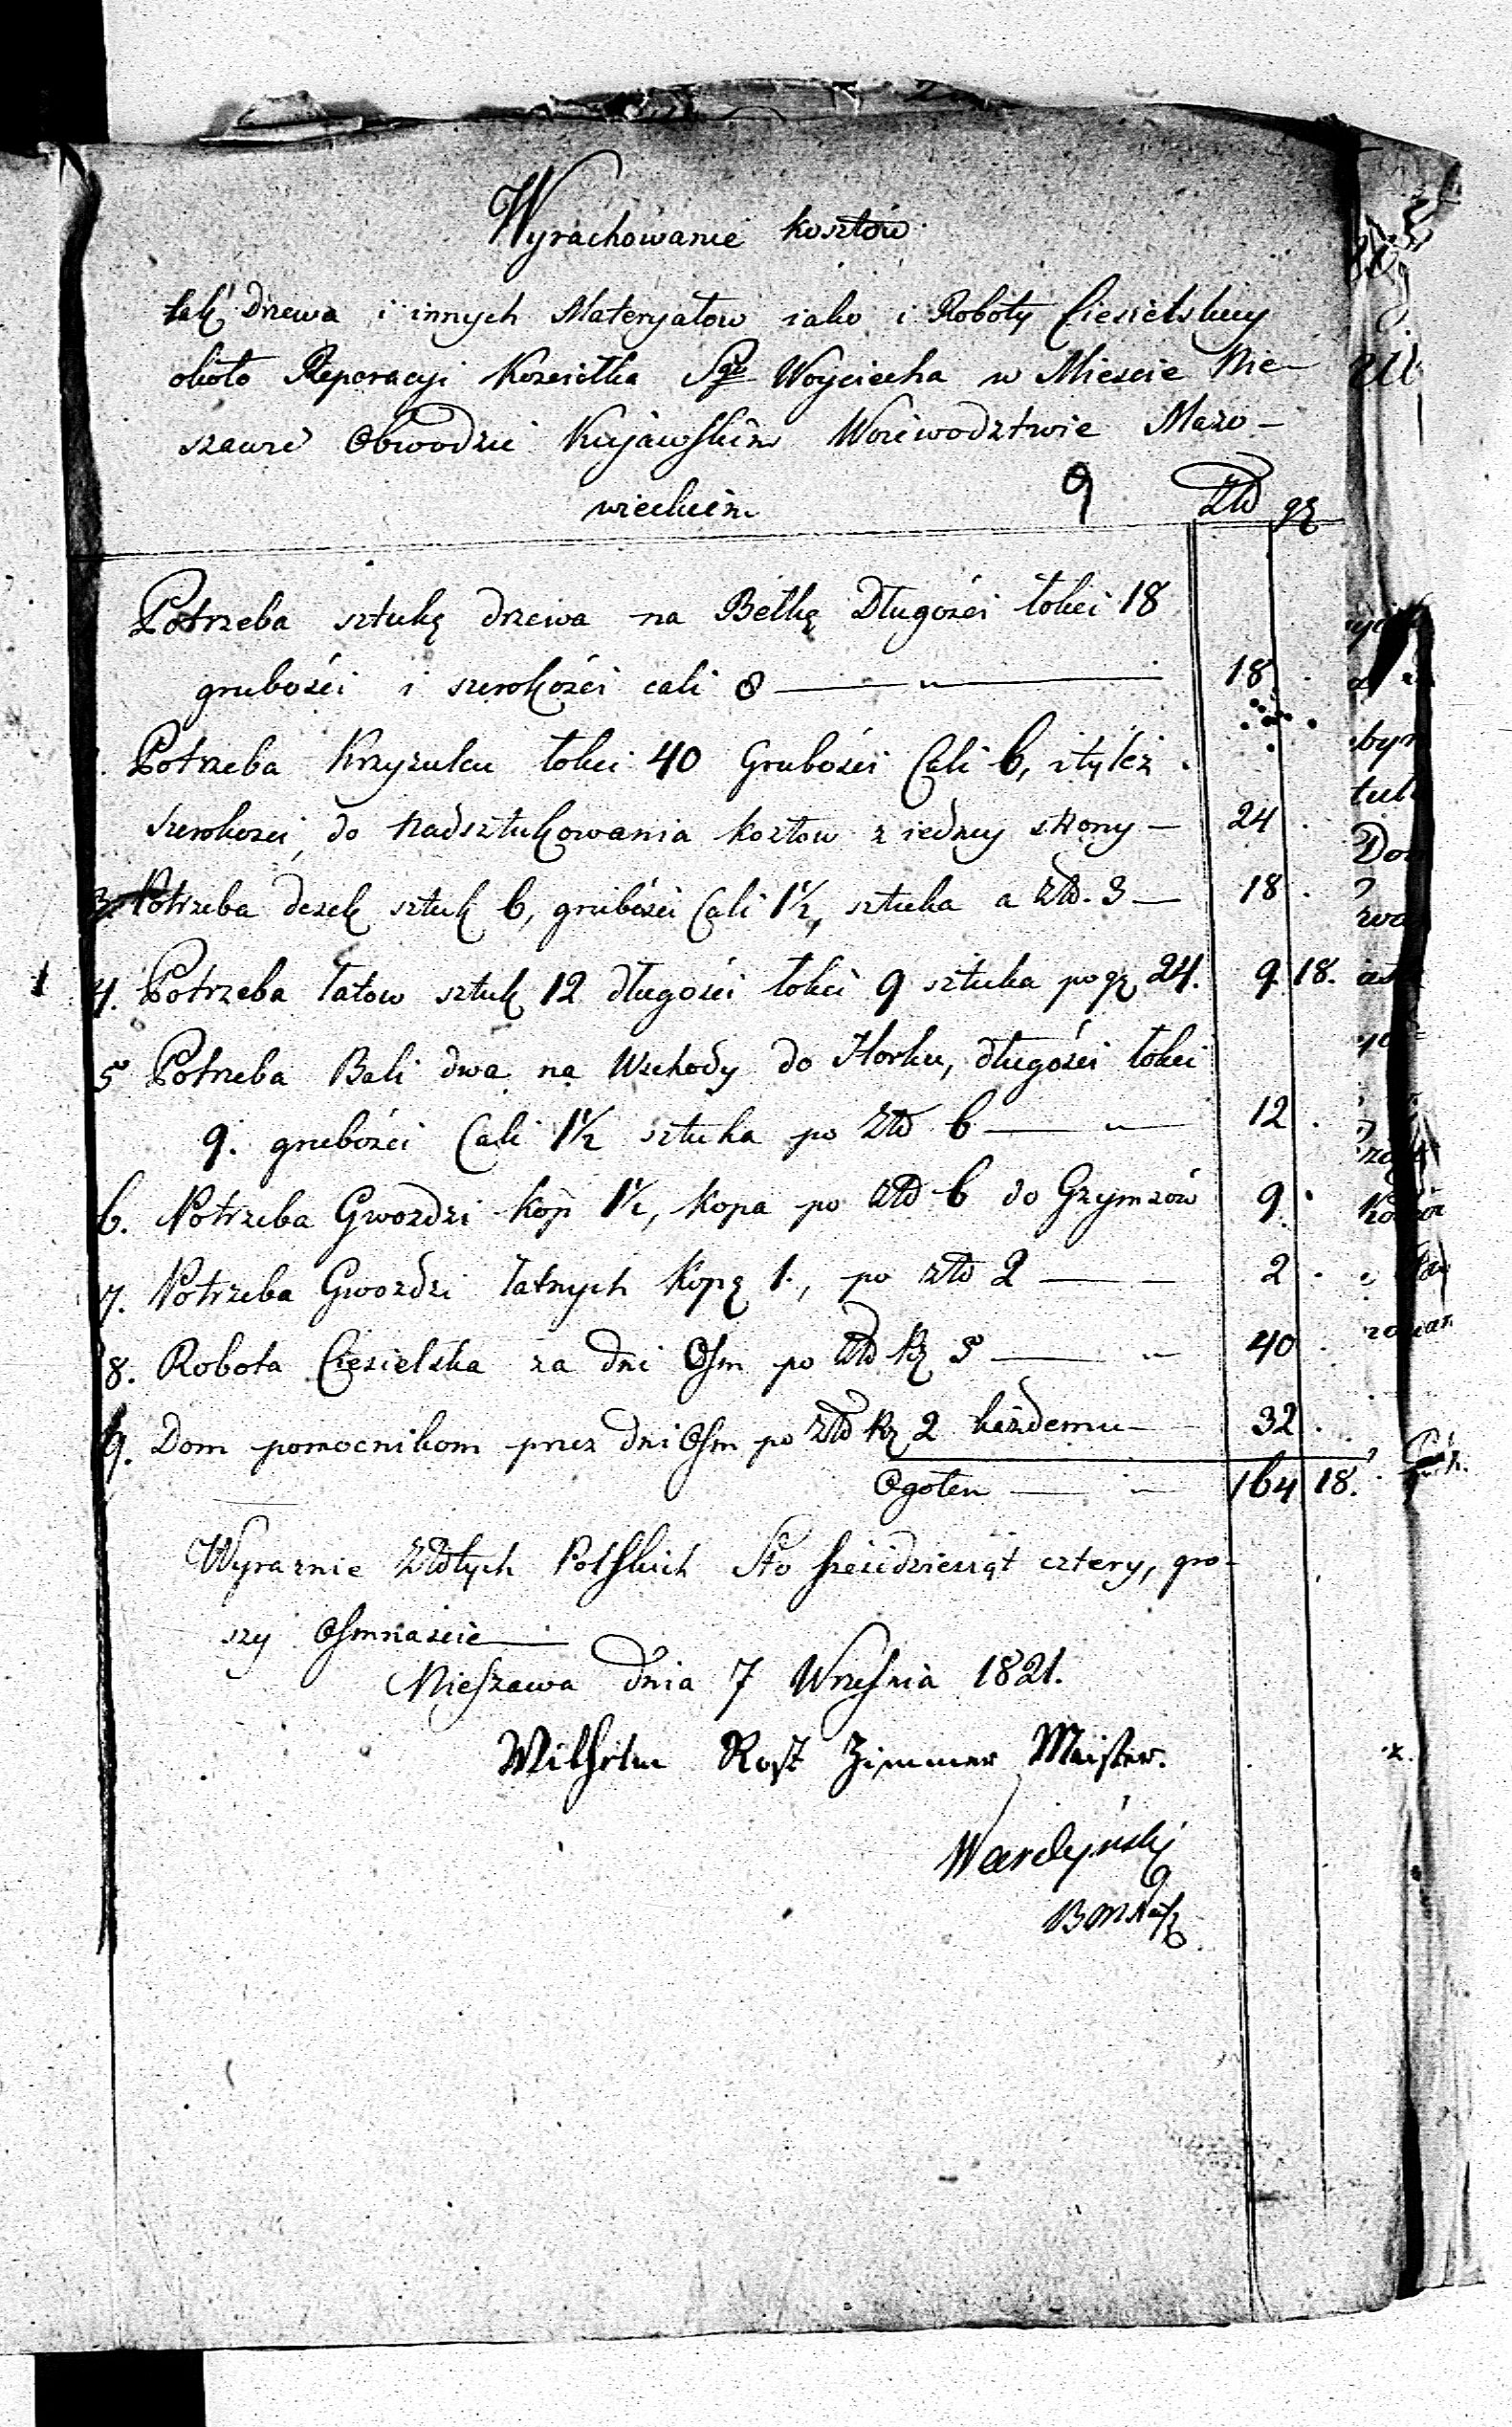 Wyrachowanie kosztow
tak Drzewa i innych Materyałow iako i Roboty Ciesielskiey
około Reparacyi Kosciołka Sgo Woyciecha w Miescie Nie-
szawie Obwodzie Kujawskim Woiewodztwie Mazo-
wieckiem 9 Złp gr
Potrzeba sztukę drzewa na Belkę Długości łokci 18
grubości i szerokości cali 8 — " — 18 .
Potrzeba Krzyzulcu łokci 40 Grubości Cali 6, i tyleż
szerokosci, do Nadsztukowania kozłow z iedney strony — 24 .
3. Potrzeba desek sztuk 6, grubości Cali 1½, sztuka a Złp. 3 — 18 .
4. Potrzeba łatow sztuk 12 długości łokci 9 sztuka po gr 24. 9 18.
5 Potrzeba Bali dwa na Wschody do Horku, długości łokci
9. grubości Cali 1½ sztuka po Złp 6 — " — 12 .
6. Potrzeba Gwozdzi kop 1½, kopa po Złp 6 do Gzymsów 9 .
7. Potrzeba Gwozdzi łatnych kopę 1., po złp 2 — — 2 .
8. Robota Ciesielska za dni Osm po Złp 5 — — 40 .
9. Dom pomocnikom przez dni Osm po Złp 2 każdemu — 32 .
Ogołem — — 164 18.
Wyraznie Złotych Polskich Sto sześćdziesiąt cztery, gro-
szy Osmnascie —
Nieszawa dnia 7 Wrzesnia 1821.
Wilhelm Rost Zimmer Meister.
Wardyński